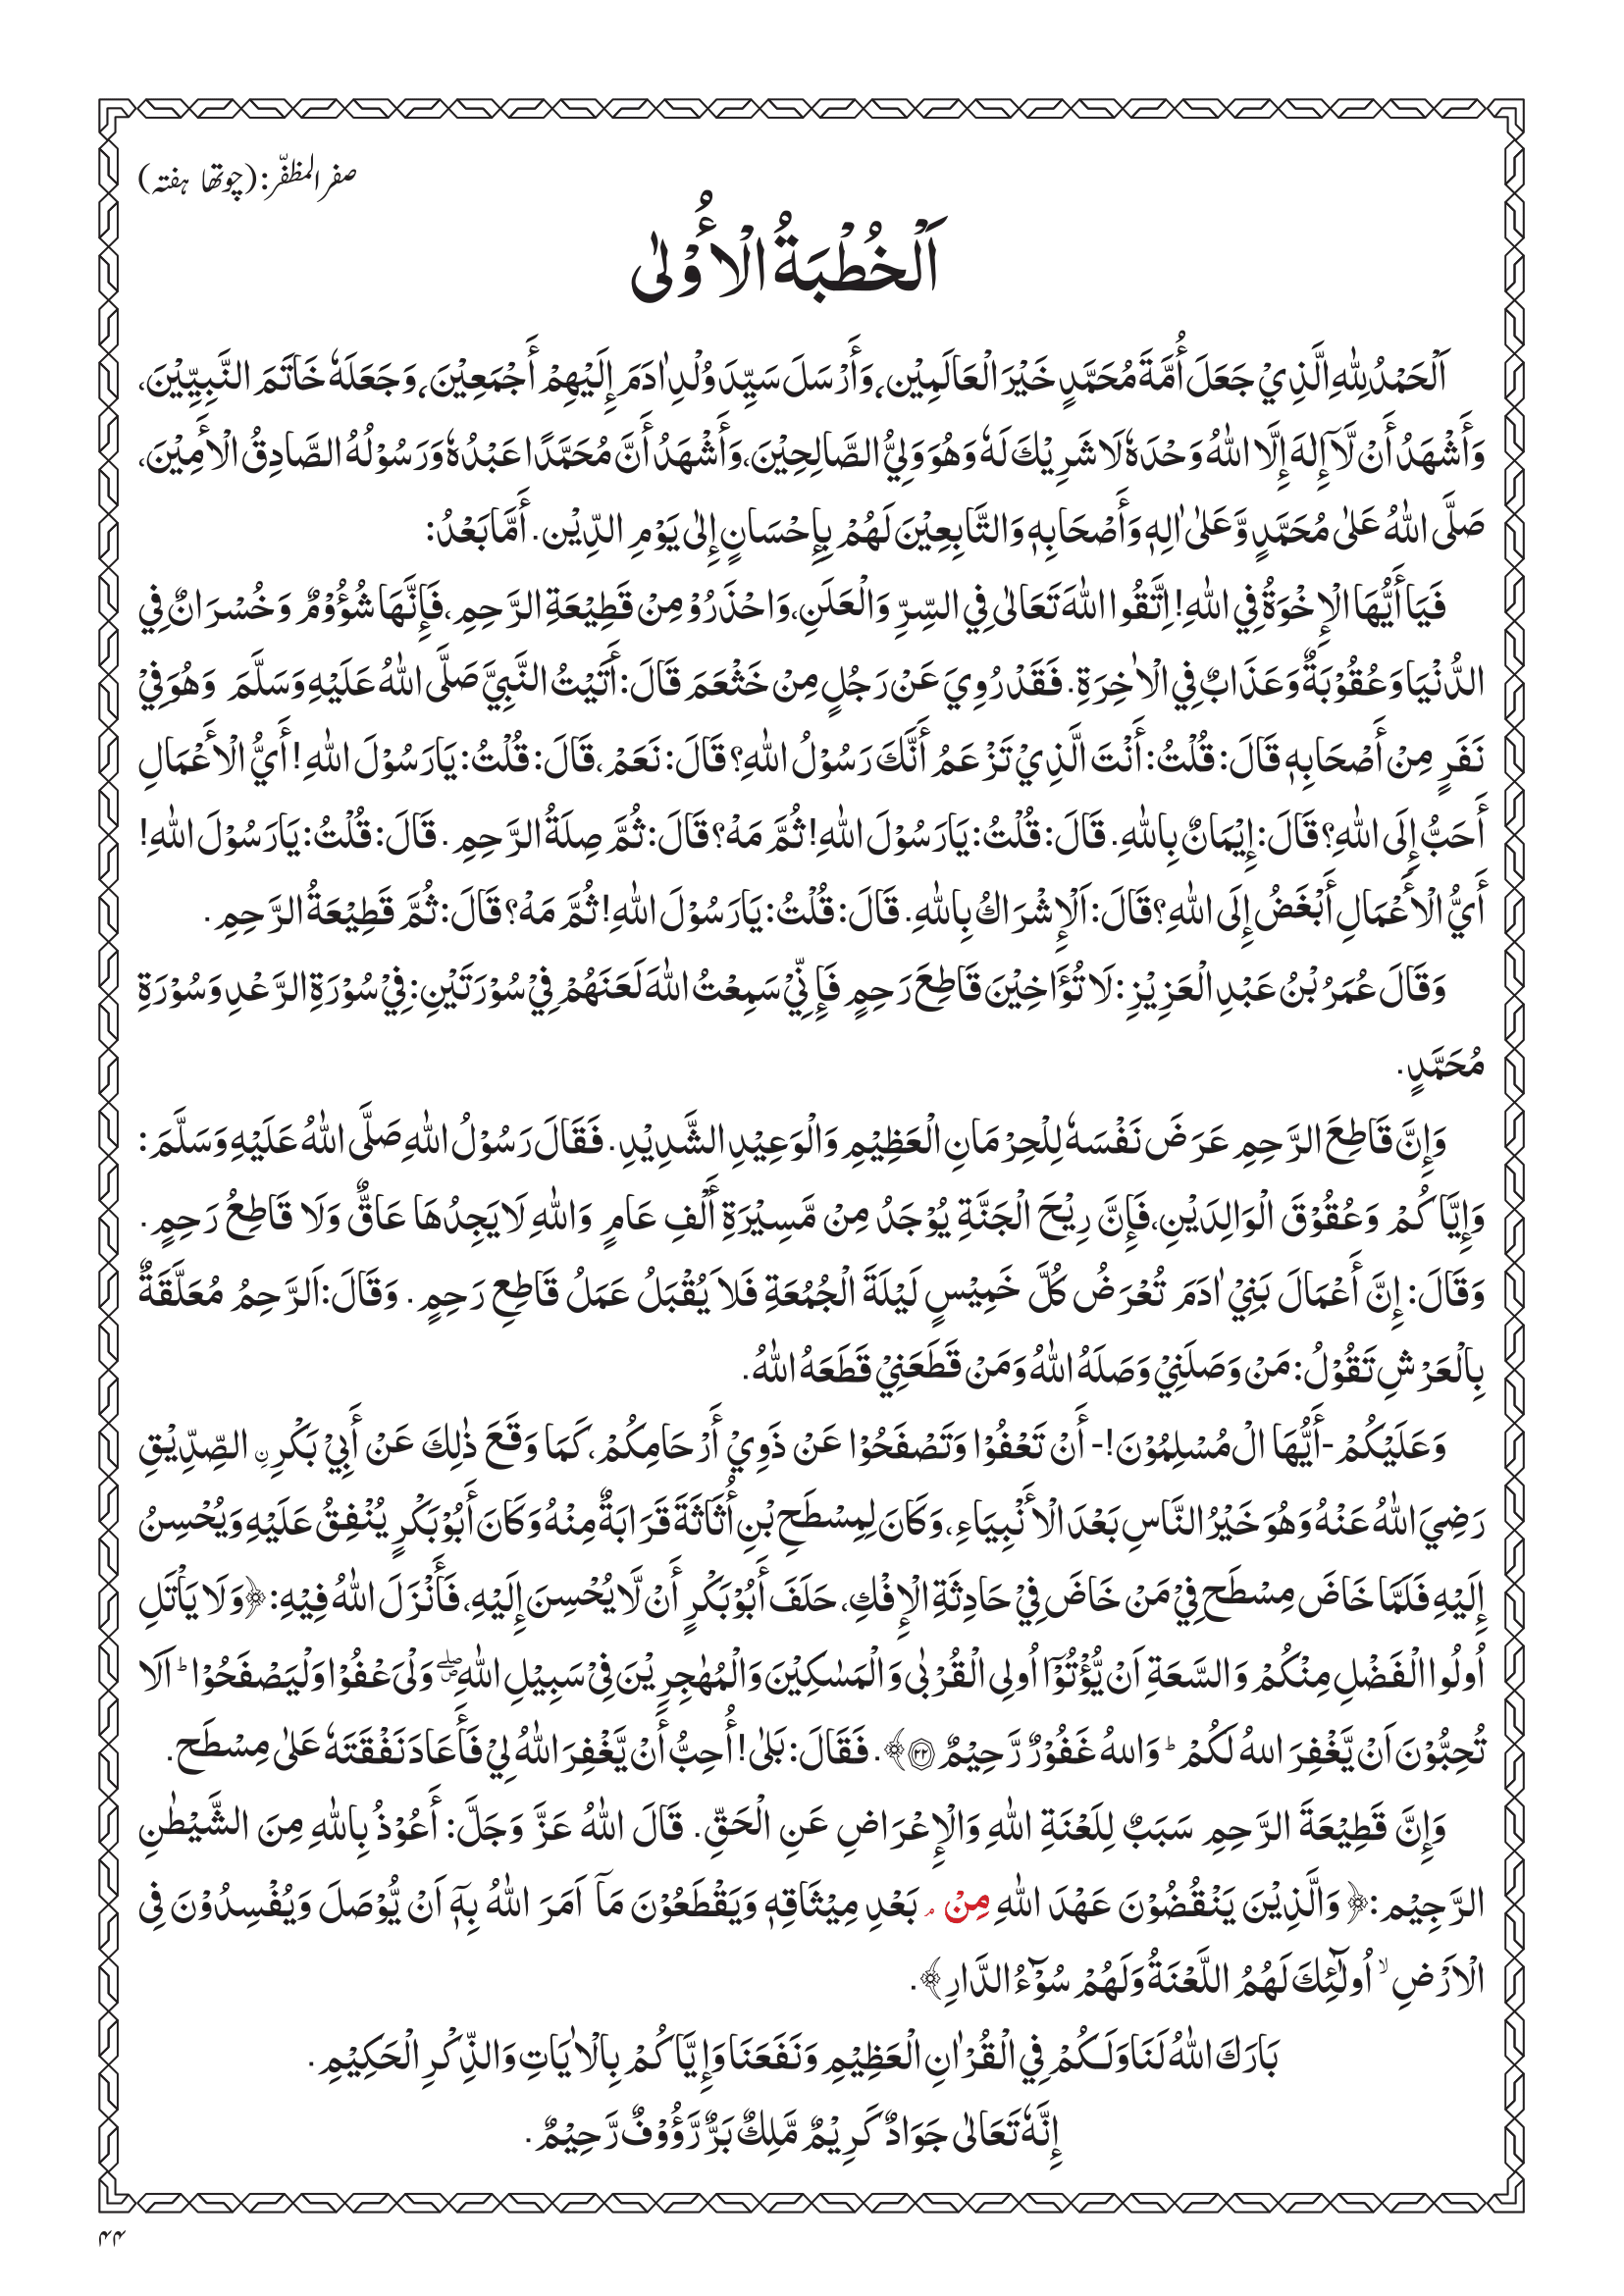 صفر المظفّر: (چوتھا ہفتہ)
اَلْخُطْبَةُ الْأُوْلٰى
اَلْحَمْدُ لِلّٰهِ الَّذِيْ جَعَلَ أُمَّةَ مُحَمَّدٍ خَيْرَ الْعَالَمِيْن، وَأَرْسَلَ سَيِّدَ وُلْدِ اٰدَمَ إِلَيْهِمْ أَجْمَعِيْنَ، وَجَعَلَهٗ خَاتَمَ النَّبِيِّيْنَ،
وَأَشْهَدُ أَنْ لَّآ إِلٰهَ إِلَّا اللّٰهُ وَحْدَهٗ لَا شَرِيْكَ لَهٗ وَهُوَ وَلِيُّ الصَّالِحِيْنَ، وَأَشْهَدُ أَنَّ مُحَمَّدًا عَبْدُهٗ وَرَسُوْلُهُ الصَّادِقُ الْأَمِيْنَ،
صَلَّى اللّٰهُ عَلٰى مُحَمَّدٍ وَّعَلٰى اٰلِهٖ وَأَصْحَابِهٖ وَالتَّابِعِيْنَ لَهُمْ بِإِحْسَانٍ إِلٰى يَوْمِ الدِّيْن. أَمَّا بَعْدُ:
فَيَا أَيُّهَا الْإِخْوَةُ فِي اللّٰهِ! اِتَّقُوا اللّٰهَ تَعَالٰى فِي السِّرِّ وَالْعَلَنِ، وَاحْذَرُوْ مِنْ قَطِيْعَةِ الرَّحِمِ، فَإِنَّهَا شُؤُوْمٌ وَخُسْرَانٌ فِي
الدُّنْيَا وَعُقُوْبَةٌ وَعَذَابٌ فِي الْاٰخِرَةِ. فَقَدْ رُوِيَ عَنْ رَجُلٍ مِنْ خَثْعَمَ قَالَ: أَتَيْتُ النَّبِيَّ صَلَّى اللّٰهُ عَلَيْهِ وَسَلَّمَ وَهُوَ فِيْ
نَفَرٍ مِنْ أَصْحَابِهٖ قَالَ: قُلْتُ: أَنْتَ الَّذِيْ تَزْعَمُ أَنَّكَ رَسُوْلُ اللّٰهِ؟ قَالَ: نَعَمْ، قَالَ: قُلْتُ: يَا رَسُوْلَ اللّٰهِ! أَيُّ الْأَعْمَالِ
أَحَبُّ إِلَى اللّٰهِ؟ قَالَ: إِيْمَانٌ بِاللّٰهِ. قَالَ: قُلْتُ: يَا رَسُوْلَ اللّٰهِ! ثُمَّ مَهْ؟ قَالَ: ثُمَّ صِلَةُ الرَّحِمِ. قَالَ: قُلْتُ: يَا رَسُوْلَ اللّٰهِ!
أَيُّ الْأَعْمَالِ أَبْغَضُ إِلَى اللّٰهِ؟ قَالَ: اَلْإِشْرَاكُ بِاللّٰهِ. قَالَ: قُلْتُ: يَا رَسُوْلَ اللّٰهِ! ثُمَّ مَهْ؟ قَالَ: ثُمَّ قَطِيْعَةُ الرَّحِمِ.
وَقَالَ عُمَرُ بْنُ عَبْدِ الْعَزِيْزِ: لَا تُؤَاخِيْنَ قَاطِعَ رَحِمٍ فَإِنِّيْ سَمِعْتُ اللّٰهَ لَعَنَهُمْ فِيْ سُوْرَتَيْنِ: فِيْ سُوْرَةِ الرَّعْدِ وَسُوْرَةِ
مُحَمَّدٍ.
وَإِنَّ قَاطِعَ الرَّحِمِ عَرَضَ نَفْسَهٗ لِلْحِرْمَانِ الْعَظِيْمِ وَالْوَعِيْدِ الشَّدِيْدِ. فَقَالَ رَسُوْلُ اللّٰهِ صَلَّى اللّٰهُ عَلَيْهِ وَسَلَّمَ:
وَإِيَّاكُمْ وَعُقُوْقَ الْوَالِدَيْنِ، فَإِنَّ رِيْحَ الْجَنَّةِ يُوْجَدُ مِنْ مَّسِيْرَةِ أَلْفِ عَامٍ وَاللّٰهِ لَا يَجِدُهَا عَاقٌّ وَلَا قَاطِعُ رَحِمٍ.
وَقَالَ: إِنَّ أَعْمَالَ بَنِيْ اٰدَمَ تُعْرَضُ كُلَّ خَمِيْسٍ لَيْلَةَ الْجُمُعَةِ فَلَا يُقْبَلُ عَمَلُ قَاطِعِ رَحِمٍ. وَقَالَ: اَلرَّحِمُ مُعَلَّقَةٌ
بِالْعَرْشِ تَقُوْلُ: مَنْ وَصَلَنِيْ وَصَلَهُ اللّٰهُ وَمَنْ قَطَعَنِيْ قَطَعَهُ اللّٰهُ.
وَعَلَيْكُمْ -أَيُّهَا الْمُسْلِمُوْنَ!- أَنْ تَعْفُوْا وَتَصْفَحُوْا عَنْ ذَوِيْ أَرْحَامِكُمْ، كَمَا وَقَعَ ذٰلِكَ عَنْ أَبِيْ بَكْرِنِ الصِّدِّيْقِ
رَضِيَ اللّٰهُ عَنْهُ وَهُوَ خَيْرُ النَّاسِ بَعْدَ الْأَنْبِيَاءِ، وَكَانَ لِمِسْطَحِ بْنِ أُثَاثَةَ قَرَابَةٌ مِنْهُ وَكَانَ أَبُوْ بَكْرٍ يُنْفِقُ عَلَيْهِ وَيُحْسِنُ
إِلَيْهِ فَلَمَّا خَاضَ مِسْطَح فِيْ مَنْ خَاضَ فِيْ حَادِثَةِ الْإِفْكِ، حَلَفَ أَبُوْ بَكْرٍ أَنْ لَّا يُحْسِنَ إِلَيْهِ، فَأَنْزَلَ اللّٰهُ فِيْهِ: ﴿وَلَا يَأْتَلِ
اُولُوا الْفَضْلِ مِنْكُمْ وَالسَّعَةِ اَنْ يُّؤْتُوْٓا اُولِى الْقُرْبٰى وَالْمَسٰكِيْنَ وَالْمُهٰجِرِيْنَ فِىْ سَبِيْلِ اللّٰهِ ۖ وَلْيَعْفُوْا وَلْيَصْفَحُوْا ؕ اَلَا
تُحِبُّوْنَ اَنْ يَّغْفِرَ اللّٰهُ لَكُمْ ؕ وَاللّٰهُ غَفُوْرٌ رَّحِيْمٌ ۝۲۲﴾. فَقَالَ: بَلٰى! أُحِبُّ أَنْ يَّغْفِرَ اللّٰهُ لِيْ فَأَعَادَ نَفْقَتَهٗ عَلٰى مِسْطَح.
وَإِنَّ قَطِيْعَةَ الرَّحِمِ سَبَبٌ لِلَعْنَةِ اللّٰهِ وَالْإِعْرَاضِ عَنِ الْحَقِّ. قَالَ اللّٰهُ عَزَّ وَجَلَّ: أَعُوْذُ بِاللّٰهِ مِنَ الشَّيْطٰنِ
الرَّجِيْم: ﴿وَالَّذِيْنَ يَنْقُضُوْنَ عَهْدَ اللّٰهِ مِنْۢ بَعْدِ مِيْثَاقِهٖ وَيَقْطَعُوْنَ مَآ اَمَرَ اللّٰهُ بِهٖٓ اَنْ يُّوْصَلَ وَيُفْسِدُوْنَ فِى
الْاَرْضِ ۙ اُولٰٓئِكَ لَهُمُ اللَّعْنَةُ وَلَهُمْ سُوْٓءُ الدَّارِ﴾.
بَارَكَ اللّٰهُ لَنَا وَلَكُمْ فِي الْقُرْاٰنِ الْعَظِيْمِ وَنَفَعَنَا وَإِيَّاكُمْ بِالْاٰيَاتِ وَالذِّكْرِ الْحَكِيْمِ.
إِنَّهٗ تَعَالٰى جَوَادٌ كَرِيْمٌ مَّلِكٌ بَرٌّ رَّؤُوْفٌ رَّحِيْمٌ.
۴۴